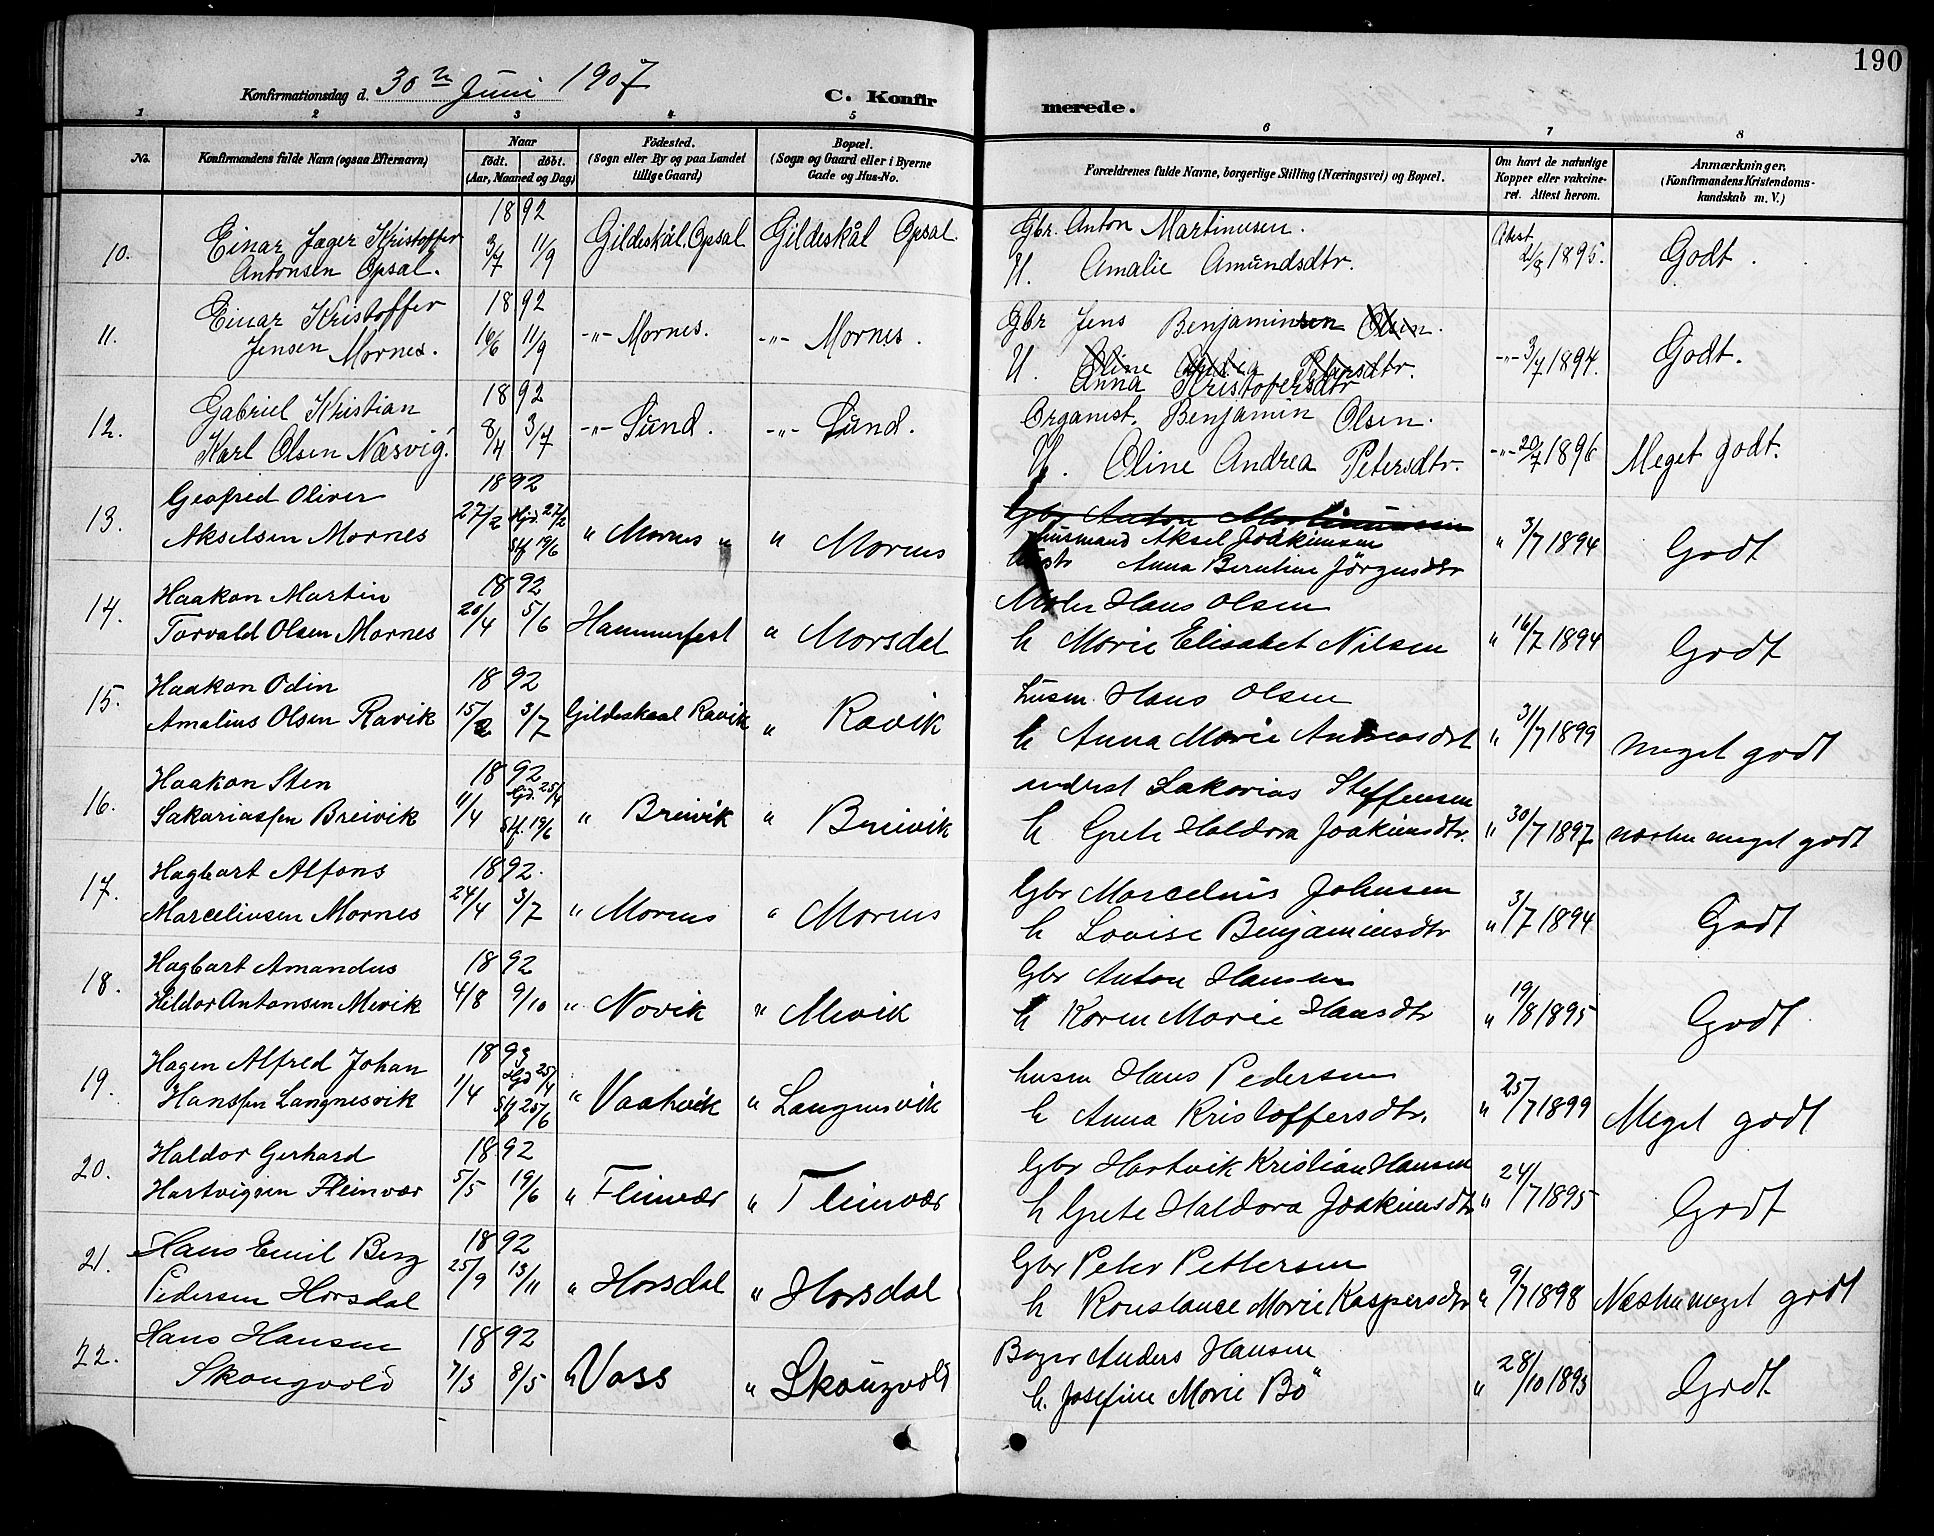 190
Konfirmationsdag d. 30te Juni 1907
C. Konfirmerede.
1 2 3 4 5 6 7 8
No.
Konfirmandens fulde Navn (ogsaa Efternavn)
Naar
födt. döbt.
(Aar, Maaned og Dag)
Födested.
(Sogn eller By og paa Landet
tillige Gaard)
Bopæl.
(Sogn og Gaard eller i Byerne
Gade og Hus-No.
Forældrenes fulde Navne, borgerlige Stilling (Næringsvei) og Bopæl.
Om havt de naturlige
Kopper eller vakcine-
ret. Attest herom.
Anmærkninger,
(Konfirmandens Kristendoms-
kundskab m. V.)
1892 Gbr. Anton Martinusen. Attest
10. Einar Jæger Kristoffer 3/7 11/9 Gildeskål. Opsal Gildeskål Opsal. 1895. Godt.
Antonsen Opsal. H. Amalie Amundsdtr.
1892
11. Einar Kristoffer 16/6 11/9 -"- Mornes. -"- Mornes. Gbr Jens Benjaminsen Olsen.
Jensen Mornes. H. Oline Andrea Petersdtr. -"- 3/7 1894. Godt.
Anna Kristofersdtr
1892
12. Gabriel Kristian 8/4 3/7 -"- Sund. -"- Sund. Organist. Benjamin Olsen.
Karl Olsen Næsvig. H. Oline Andrea Petersdtr. -"- 20/7 1896 Meget godt.
1892
13. Geofred Oliver 27/2 Hjd. 27/2 " Mornes " " Mornes Gbr Anton Martinussen
Akselsen Mornes Stf 19/6 husmand Aksel Joakimsen " 3/7 1894 Godt
Anna Berntine Jörgensdtr
1892
14. Haakon Martin 20/4 5/6 Hammerfest " Morsdal Hans Olsen
Torvald Olsen Mornes h Marie Elisabet Nilsen " 16/7 1894 Godt
1892
15. Haakon Odin 15/2 3/7 Gildeskaal Ravik " Ravik husm. Hans Olsen
Amalius Olsen Ravik h Anna Marie Andreasdtr " 31/7 1899 meget godt
1892
16. Haakon Sten 11/4 Hjd. 25/4 " Breivik " Breivik inderst Sakarias Steffensen
Sakariassen Breivik Stf. 19/6 h Grete Haldora Joakimsdtr. " 30/7 1897 næsten meget godt
1892.
17. Hagbart Alfons 24/4 3/7 " Mornes " Mornes Gbr Marcelius Johnsen
Marceliusen Mornes h Lovise Benjaminsdtr " 3/7 1894 Godt
1892
18. Hagbart Amandus 4/8 9/10 " Novik " Mevik Gbr Anton Hansen
Hildor Antonsen Mevik h Karen Marie Hansdtr " 19/8 1895 Godt
1893
19. Hagen Alfred Johan 1/4 Hjd 25/4 " Vaatvik " Langnesvik husm Hans Pedersen
Hanssen Langnesvik Stf 25/6 h Anna Kristoffersdtr. " 25/7 1899 Meget godt
1892
20. Haldor Gerhard 5/5 19/6 " Fleinvær " Fleinvær Gbr Hartvik Kristian Hansen
Hartvigsen Fleinvær h Grete Haldora Joakimsdtr " 24/7 1895 Godt
1892
21. Hans Emil Berg 25/9 13/11 " Horsdal " Horsdal Gbr Peter Pettersen
Pedersen Horsdal h Konstance Marie Kaspersdtr " 9/7 1898 Næsten meget godt
1892
22. Hans Hansen 7/3 8/5 " Voss " Skougvold Anders Hansen
Skougvold h. Josefine Marie Bö " 28/10 1893 Godt